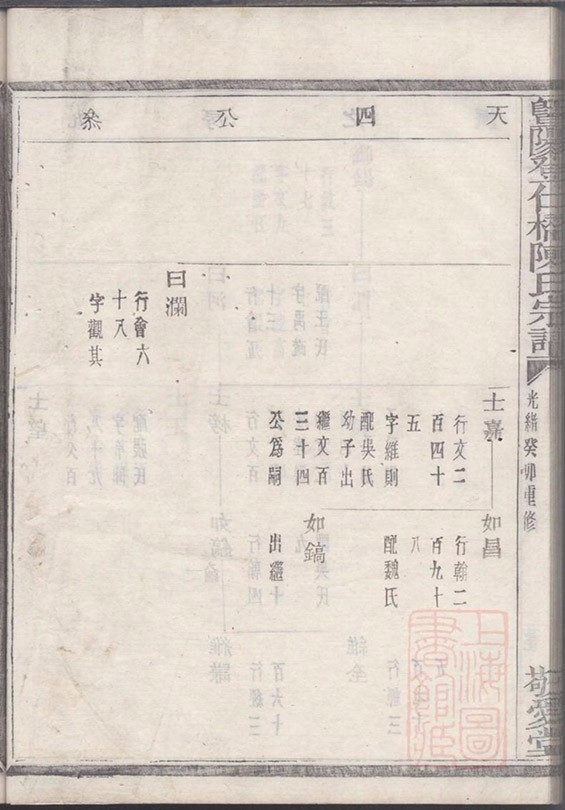 暨陽登仕橋陳氏宗譜
光緒癸卯重修
敬愛堂
天四公系
士嘉
行文二
百四十
五
字維則
配吳氏
幼子出
繼文百
三十四
公爲嗣
如昌
行翰二
百九十
八
配魏氏
如鎬
出繼
曰瀾
行會六
十八
字觀其
上海圖書館藏